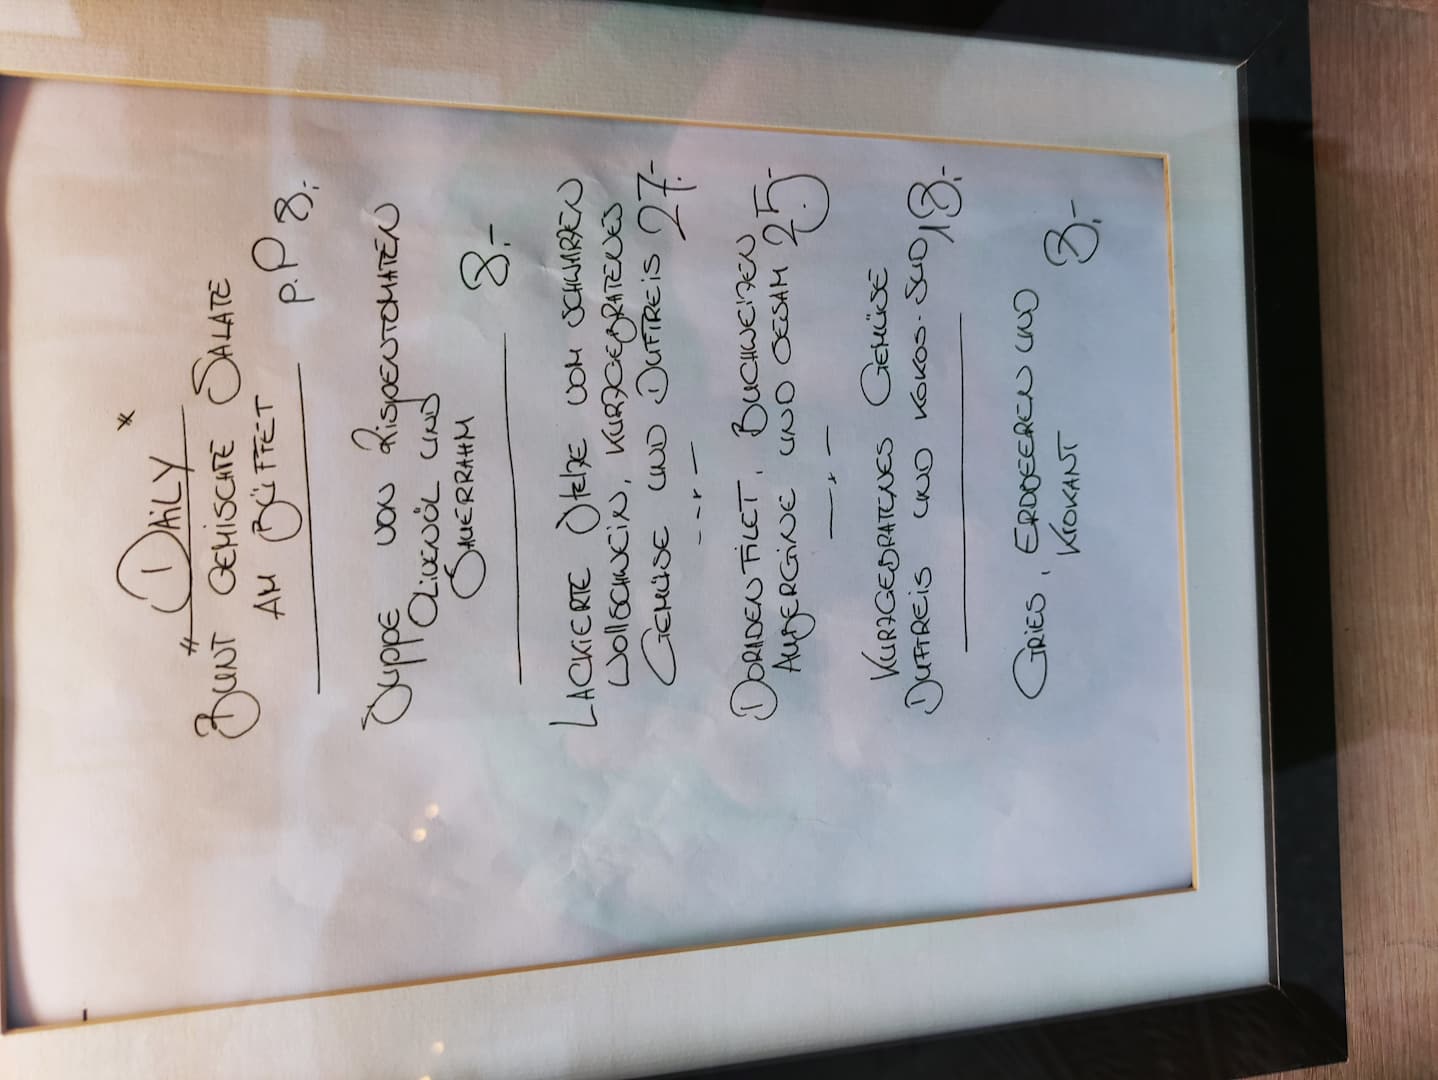 * DAILY *
BUNT GEMISCHTE SALATE
AM BÜFFET
p.P 8,-
SUPPE VON RISPENTOMATEN
OLIVENÖL UND
SAUERRAHM
8,-
LACKIERTE STELZE VOM SCHWARZEN
WOLLSCHWEIN, KURZGEBRATENES
GEMÜSE UND DUFTREIS 27,-
DORADENFILET, BUCHWEIZEN
AUBERGINE UND SESAM 25,-
KURZGEBRATENES GEMÜSE
DUFTREIS UND KOKOS-SUD 18,-
GRIES, ERDBEEREN UND
KROKANT
8,-